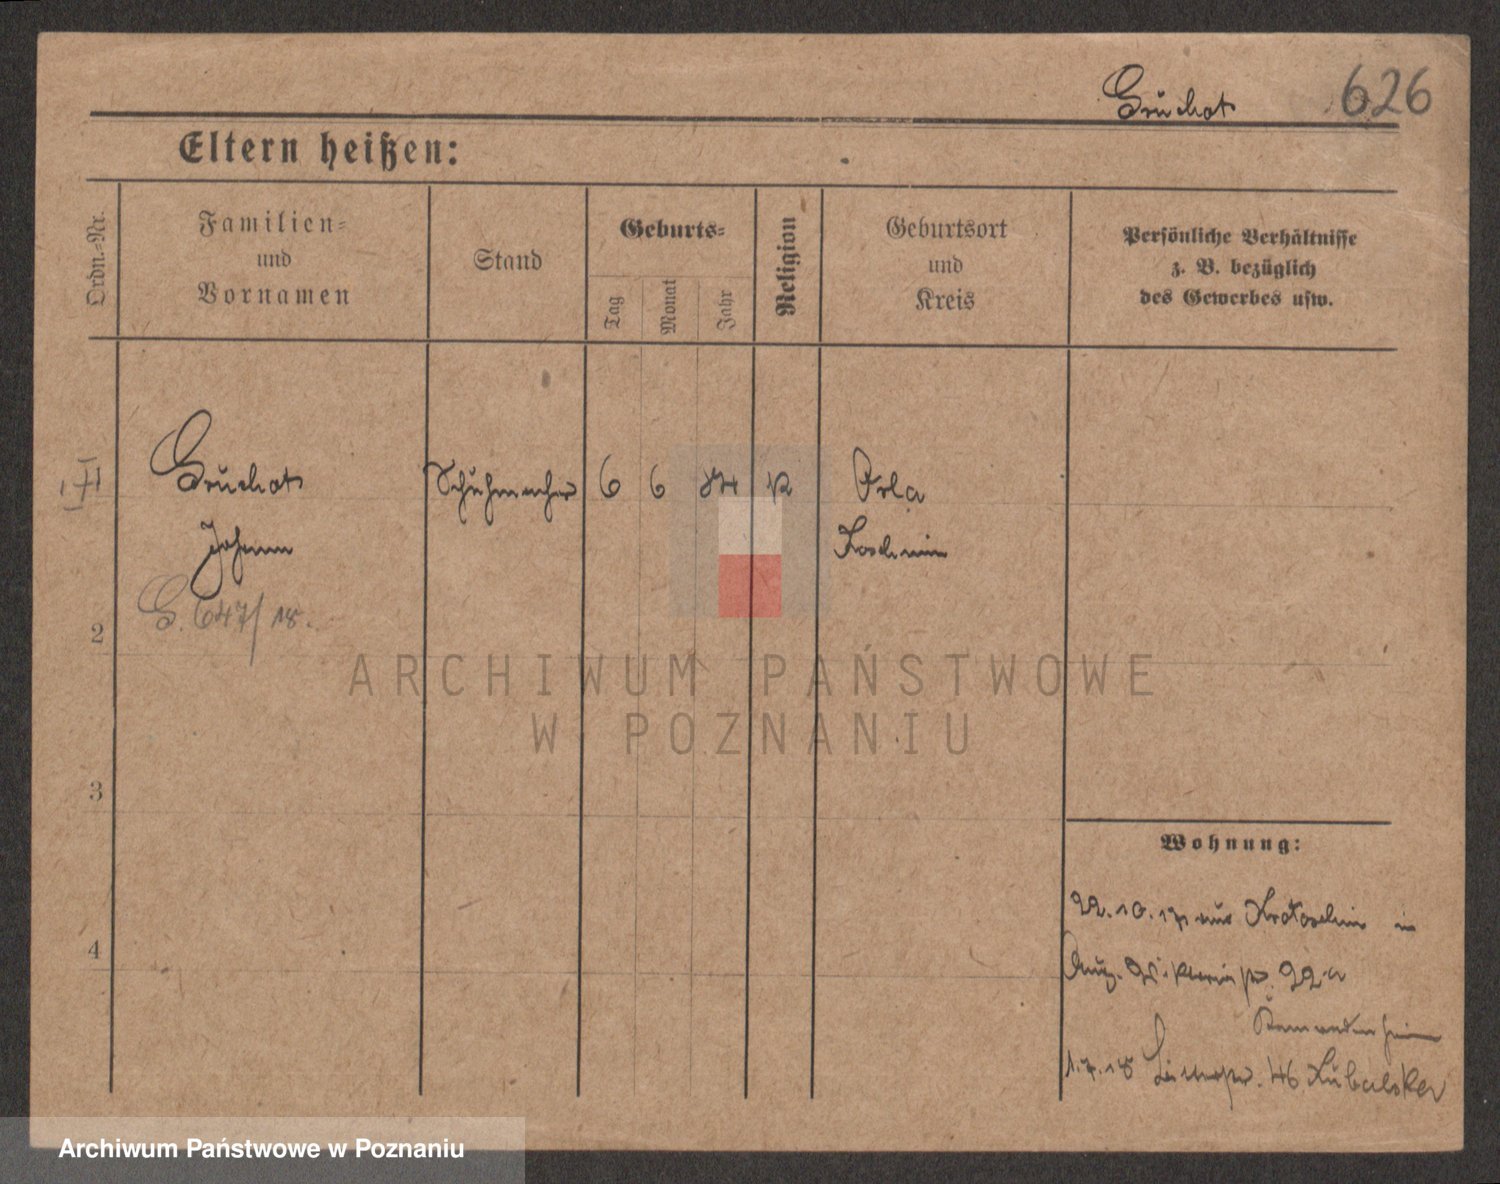 Gruchot 626
Eltern heißen:
Ordn.-Nr.
Familien-
und
Vornamen
Stand
Geburts-
Tag
Monat
Jahr
Religion
Geburtsort
und
Kreis
Persönliche Verhältnisse
z. B. bezüglich
des Gewerbes usw.
Gruchot Schuhmacher 6 6 84 K Orla
Johann Koschmin
G. 647/18.
2
3
4
Wohnung:
22.10.17 aus Krotoschin in
Aug. Viktoriastr. 22a
1.7.18 46
ARCHIWUM PAŃSTWOWE
W POZNANIU
Archiwum Państwowe w Poznaniu